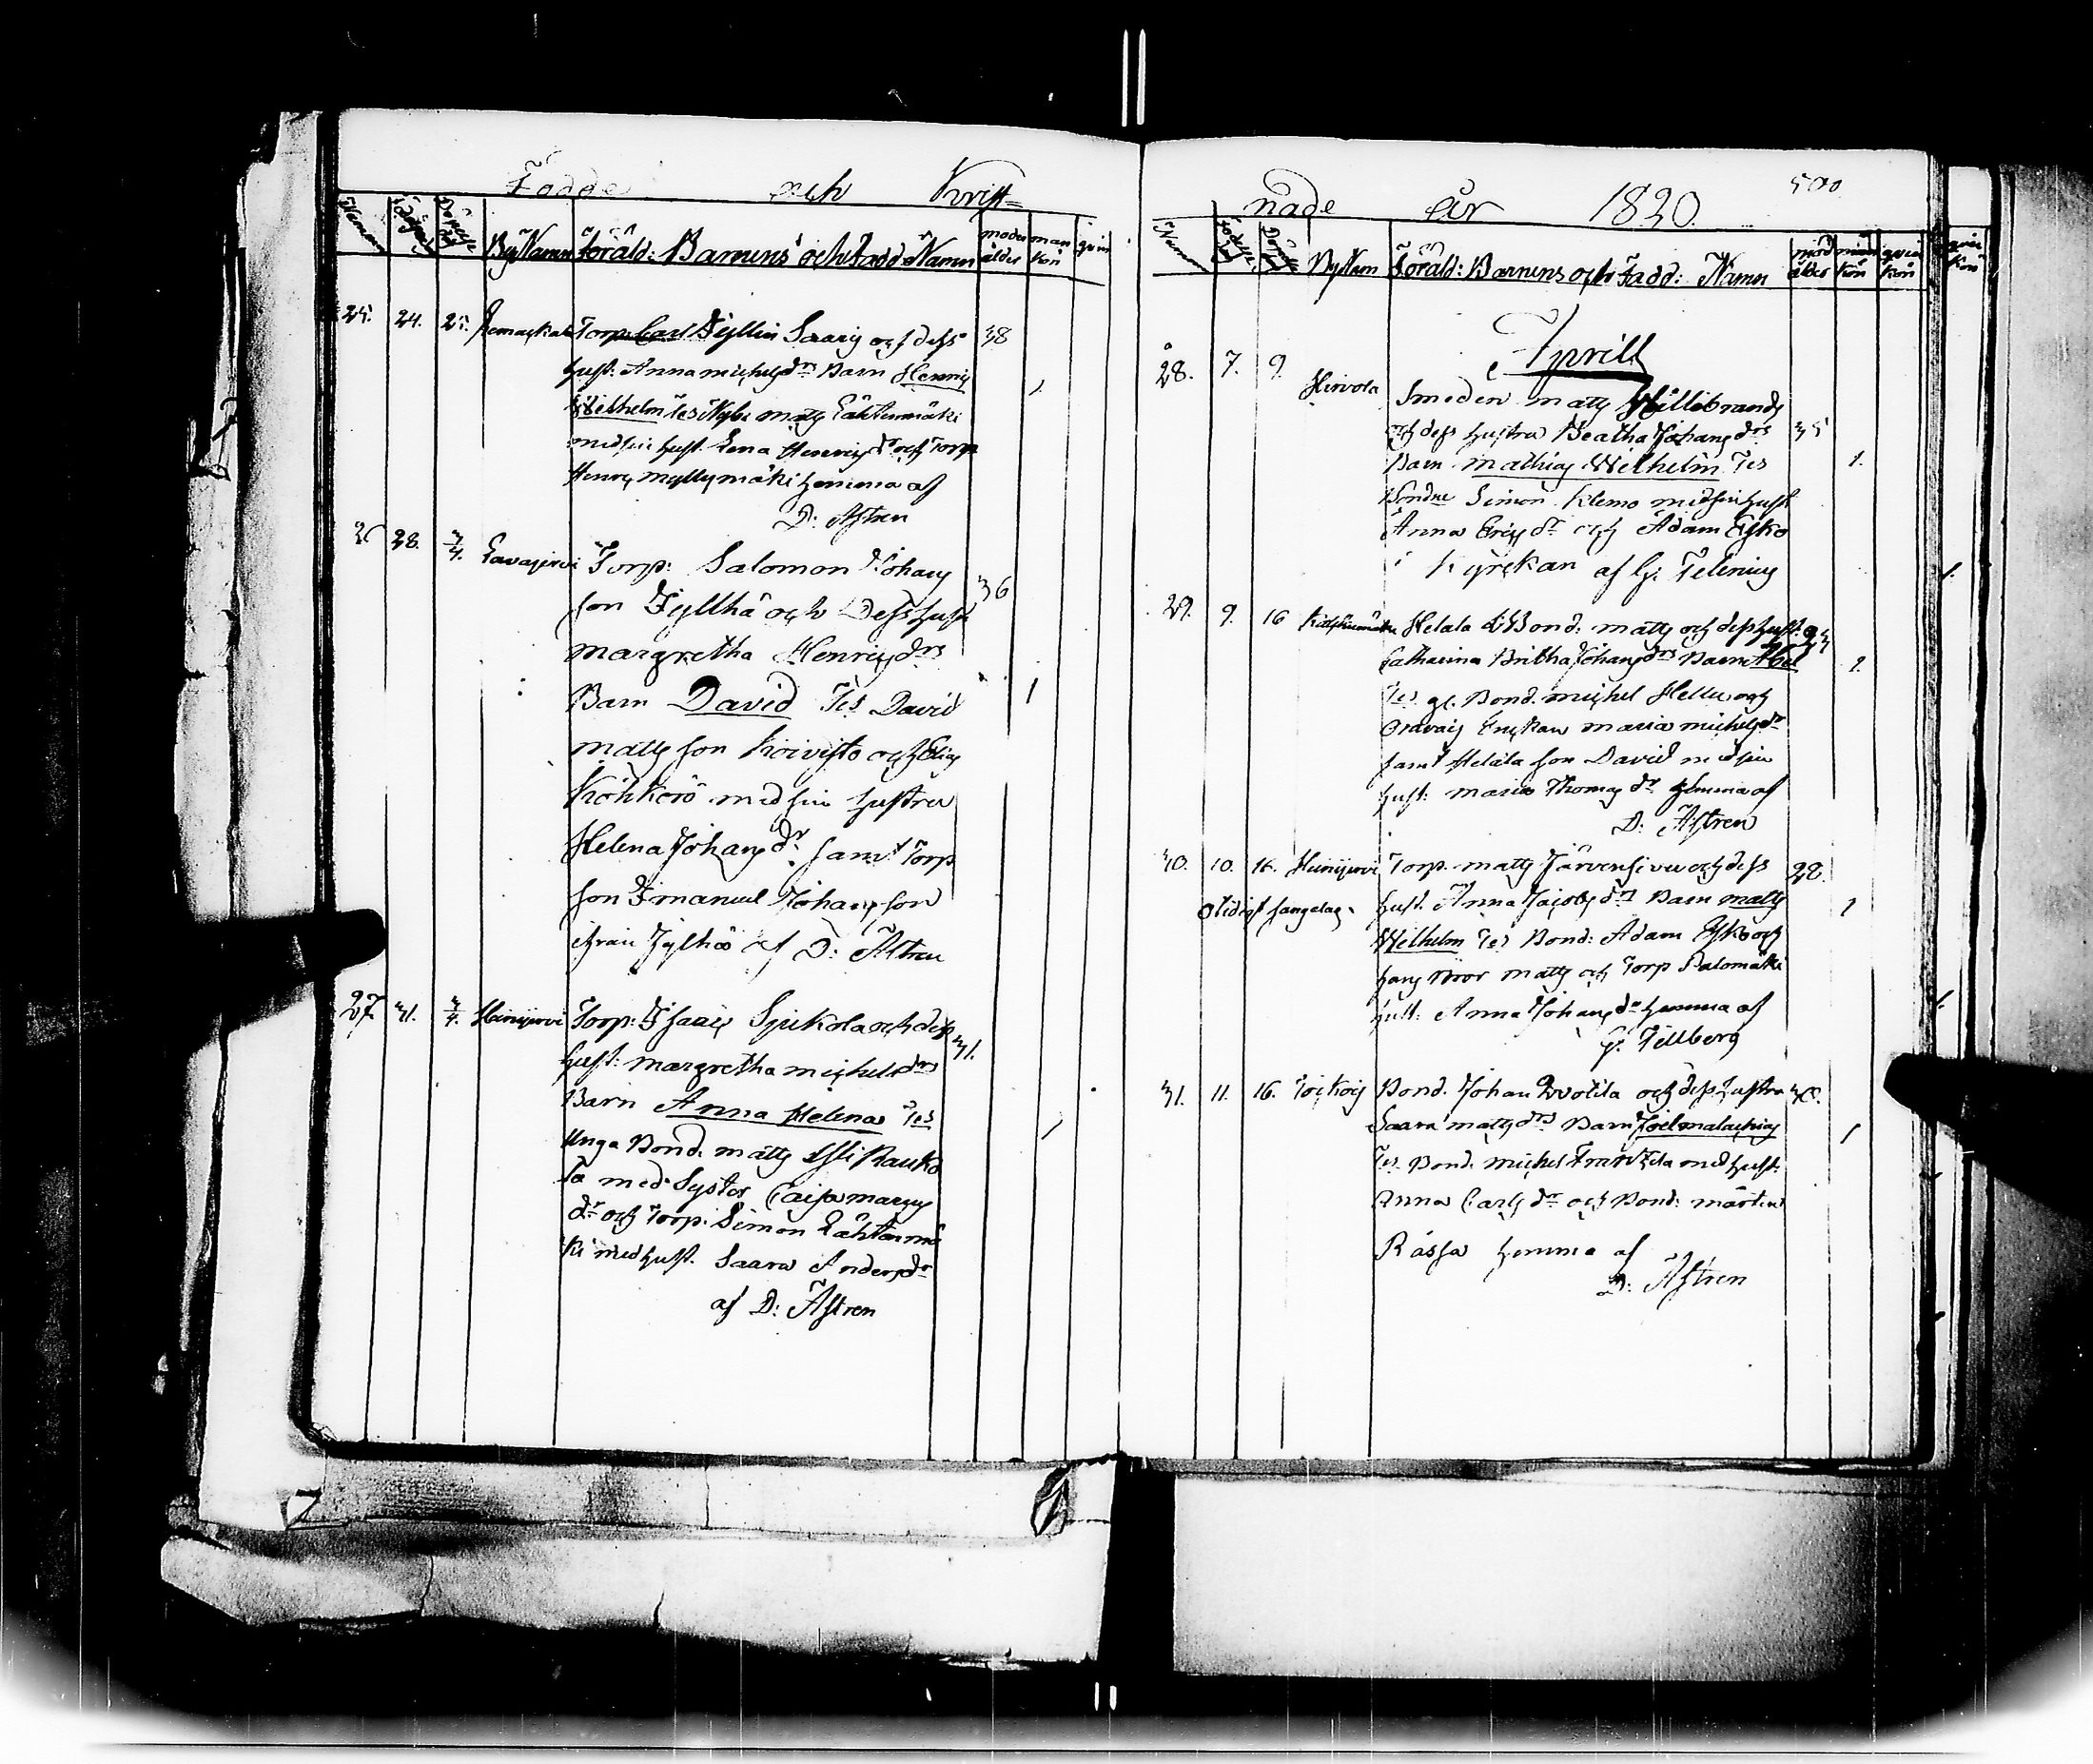 Födde och Krist=
Numern Födelse Döpelse By Namn Föräld: Barnens och Fadd: Namn moder ålder man kön qvin
25. 24. 25. Torp: Carl Jyllin Saarij och dess 38
hust: Anna michelsdrs Barn Henric 1
Wilhelm Tes Nyb: matts Lähtenmäki
med sin hust. Lena Henricsdr och Torp
Henric myllymäki hemma af
D: Astren
26 28. 3/4. Lavajervi Torp: Salomon Johans 36
son Jylthä och Dess hust
margretha Henricsdrs
Barn David Tes David 1
matts son Koivisto och Elias
Köhkoi med sin hustru
Helena Johansdr samt Torp
son Imanuel Johansson
ifrån Jylhä af D: Astren
27 31. 3/4. Heinijervi Torp: Isaac Sjukola och dess 31.
hust: margretha michelsdrs
Barn Anna Helena Tes 1
Unga Bond: matts Yli Rauko
la med Syster Caisa marcus
dr och Torp: Simon Lähtenmä
ki med hust. Saara Andersdr
af D: Astren
nade åir 1820. 500
Numer Födelse Döpelse By Nam Föräld: Barnens och Fadd: Namn mod ålder man kön qvin kön
Aprill
28. 7. 9. Hirvola Smeden matts Hillibrands
och dess hustru Beatha Johansdrs 35
Barn mathias Wilhelm Tes 1.
Bondne Simon Klemo med sin hust
Anna Ericsdr och Adam Esko
i Kyrckan af G: Telenius
29. 9. 16 Helala Bond: matts och dess hust:
Catharina Britha Johansdrs Barn Abel 1.
Tes gl. Bond. michel Hellu och
Oravais Enckan maria michelsdr
samt Helala son David med sin
hust: maria Thomasdr hemma af
D: Astren
30. 10. 16. Heinijervi Torp. matts Järvensivu och dess 28.
hust. Anna Jacobsdrs Barn matts 1
Wilhelm Tes Bond: Adam Esko och
hans Bror matts och Torp Palomäki
hust: Anna Johansdr hemma af
G: Tillberg
31. 11. 16. Joickois Bond. Johan Kvotila och dess hustru 30.
Saara mattsdrs Barn Joel malachias 1
Tes Bond: michel Frantzila med hust:
Anna Carlsdr och Bond: mårtens
Rässa hemma af
D: Astren